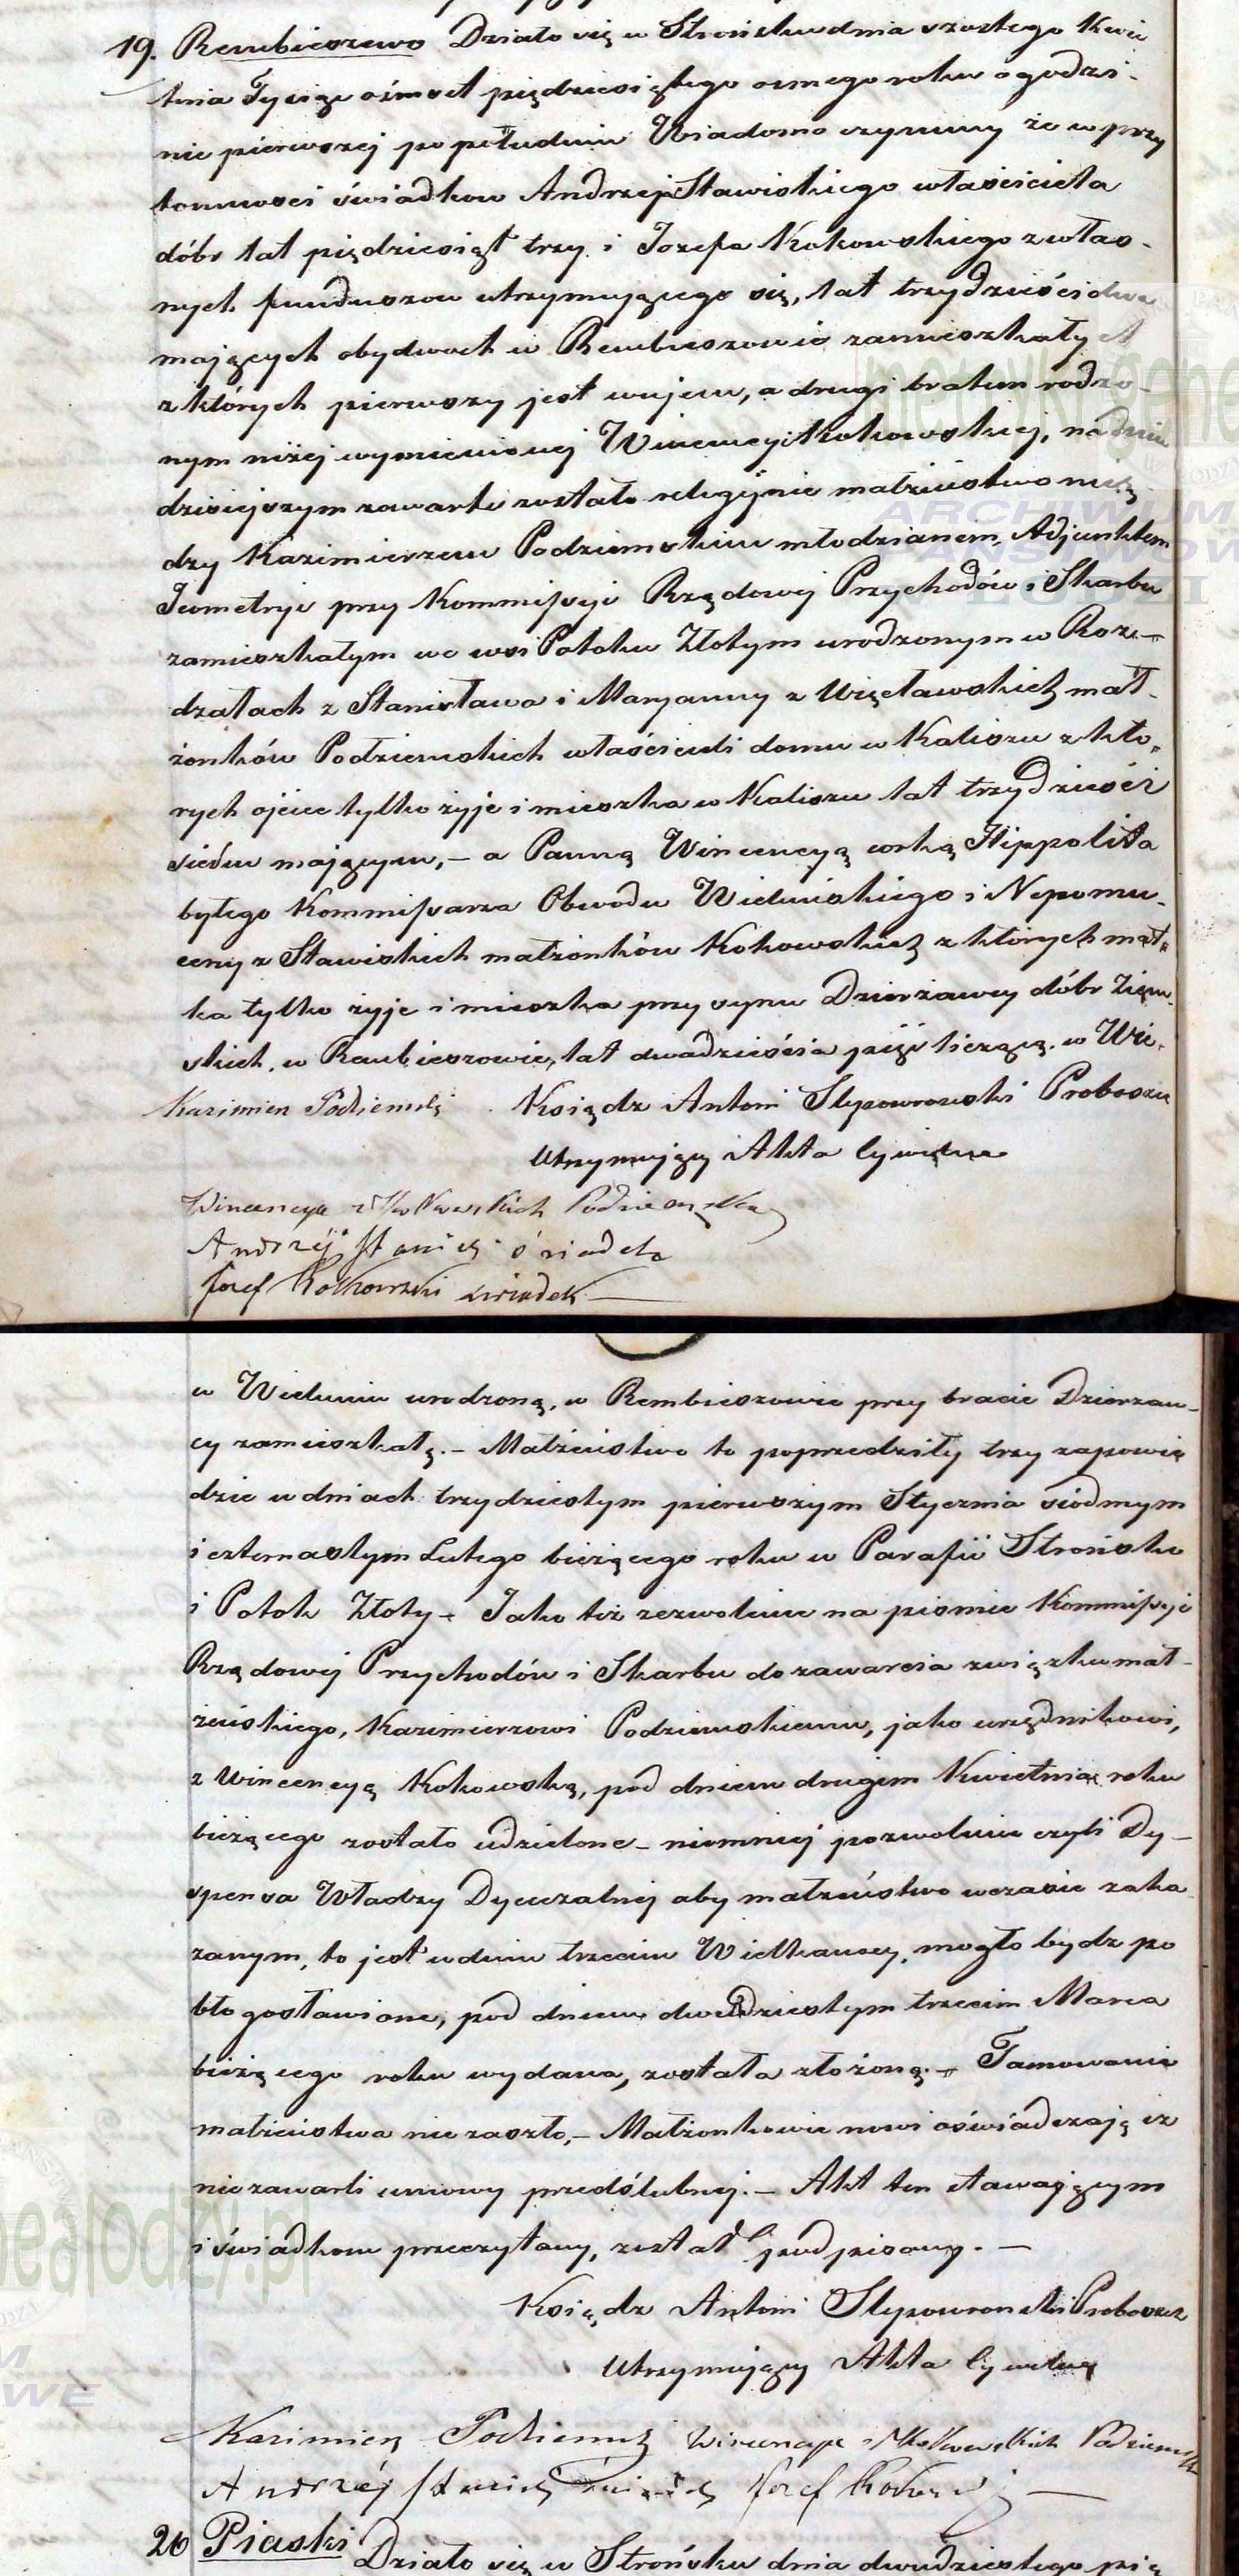 19. Rembieszewo Działo się w Strońsku dnia szóstego Kwie
tnia Tysiąc ośmset pięćdziesiątego osmego roku o godzi-
nie pierwszej po południu Wiadomo czynimy że w przy
tomności świadków Andrzeja Stawiskiego właściciela
dóbr lat pięćdziesiąt trzy i Jozefa Kokowskiego z włas-
nych funduszow utrzymującego się, lat trzydzieści dwa
mających obydwoch w Rembieszowie zamieszkałych
z których pierwszy jest wujem, a drugi bratem rodzo-
nym niżej wymienionej Wincencyi Kokowskiej, na dniu
dzisiejszym zawarte zostało religijnie małżeństwo mię
dzy Kazimierzem Podziemskim młodzianem, Adjunktem
Jeometryi przy Kommissyi Rządowej Przychodów i Skarbu
zamieszkałym we wsi Potoku Złotym urodzonym w Roz-
działach z Stanisława i Maryanny z Więcławskich mał-
żonków Podziemskich właścicieli domu w Kaliszu z któ-
rych ojciec tylko żyje i mieszka w Kaliszu lat trzydzieści
siedm mającym, – a Panną Wincencyą corką Hippolita
byłego Kommissarza Obwodu Wieluńskiego i Nepomu-
ceny z Stawiskich małżonków Kokowskich z których mat-
ka tylko żyje i mieszka przy synu Dzierżawcy dóbr Ziem-
skich, w Rembieszowie, lat dwadzieścia pięć liczącą. w Wie-
Kazimierz Podziemski Ksiądz Antoni Slepowronski Proboszcz
Utrzymujący Akta Cywilne
Wincencya z Kokowskich Podziemska
Andrzej Stawiski świadek
Jozef Kokowski świadek –
w Wieluniu urodzoną, w Rembieszowie przy bracie Dzierżaw-
cy zamieszkałą. – Małżeństwo to poprzedziły trzy zapowie
dzie w dniach trzydziestym pierwszym Stycznia siódmym
i czternastym Lutego bieżącego roku w Parafii Strońsko
i Potok Złoty – Jako też zezwolenie na piśmie Kommissyi
Rządowej Przychodów i Skarbu do zawarcia związku mał-
żeńskiego, Kazimierzowi Podziemskiemu, jako urzędnikowi,
z Wincencyą Kokowską, pod dniem drugim Kwietnia roku
bieżącego zostało udzielone – niemniej pozwolenie czyli Dy-
spensa Władzy Dyecezalnej aby małżeństwo w czasie zaka
zanym, to jest w dniu trzecim Wielkanocy, mogło bydz po
błogosławione, pod dniem dwudziestym trzecim Marca
bieżącego roku wydana, została złożoną. – Tamowanie
małżeństwa nie zaszło, – Małżonkowie nowi oświadczają iż
nie zawarli umowy przedślubnej. – Akt ten stawającym
i świadkom przeczytany, został podpisany. –
Ksiądz Antoni Slepowronski Proboszcz
Utrzymujący Akta Cywilne
Kazimierz Podziemski Wincencya z Kokowskich Podziemska
Andrzej Stawiski świadek Jozef Kokowski –
20 Piaski Działo się w Strońsku dnia dwudziestego pią